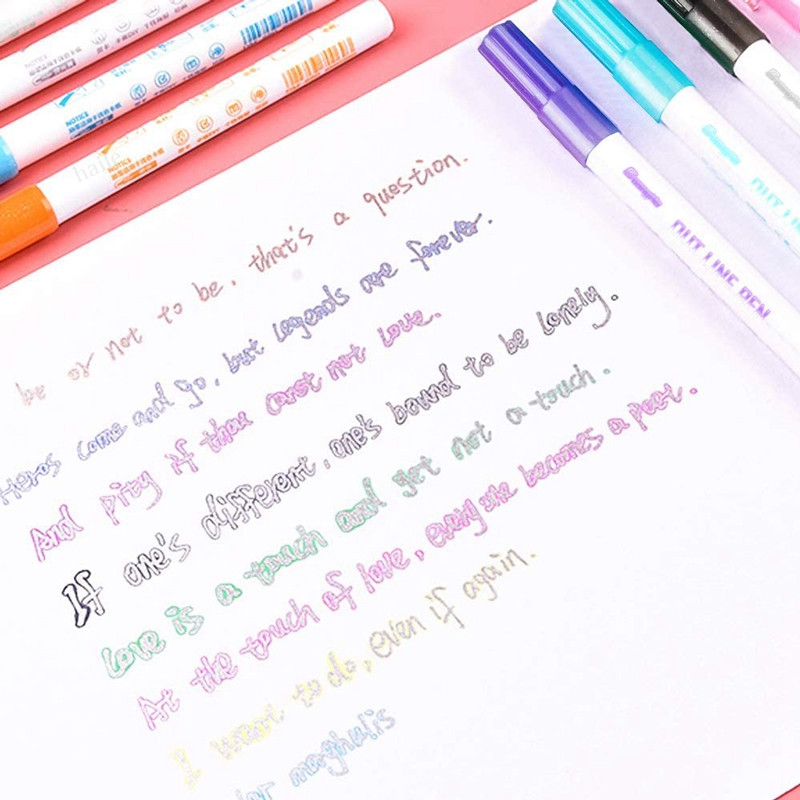 NOTICE
NOTICE
NOTICE
haile
OUT LINE PEN
OUT LINE
be or not to be. that's a question.
Heros come and go, but legends are forever.
And pity if thou canst not love.
If one's different, one's bound to be lonely.
Love is a touch and yet not a touch.
At the touch of love, every one becomes a poet.
I want to do, even if again.
lar maghulis